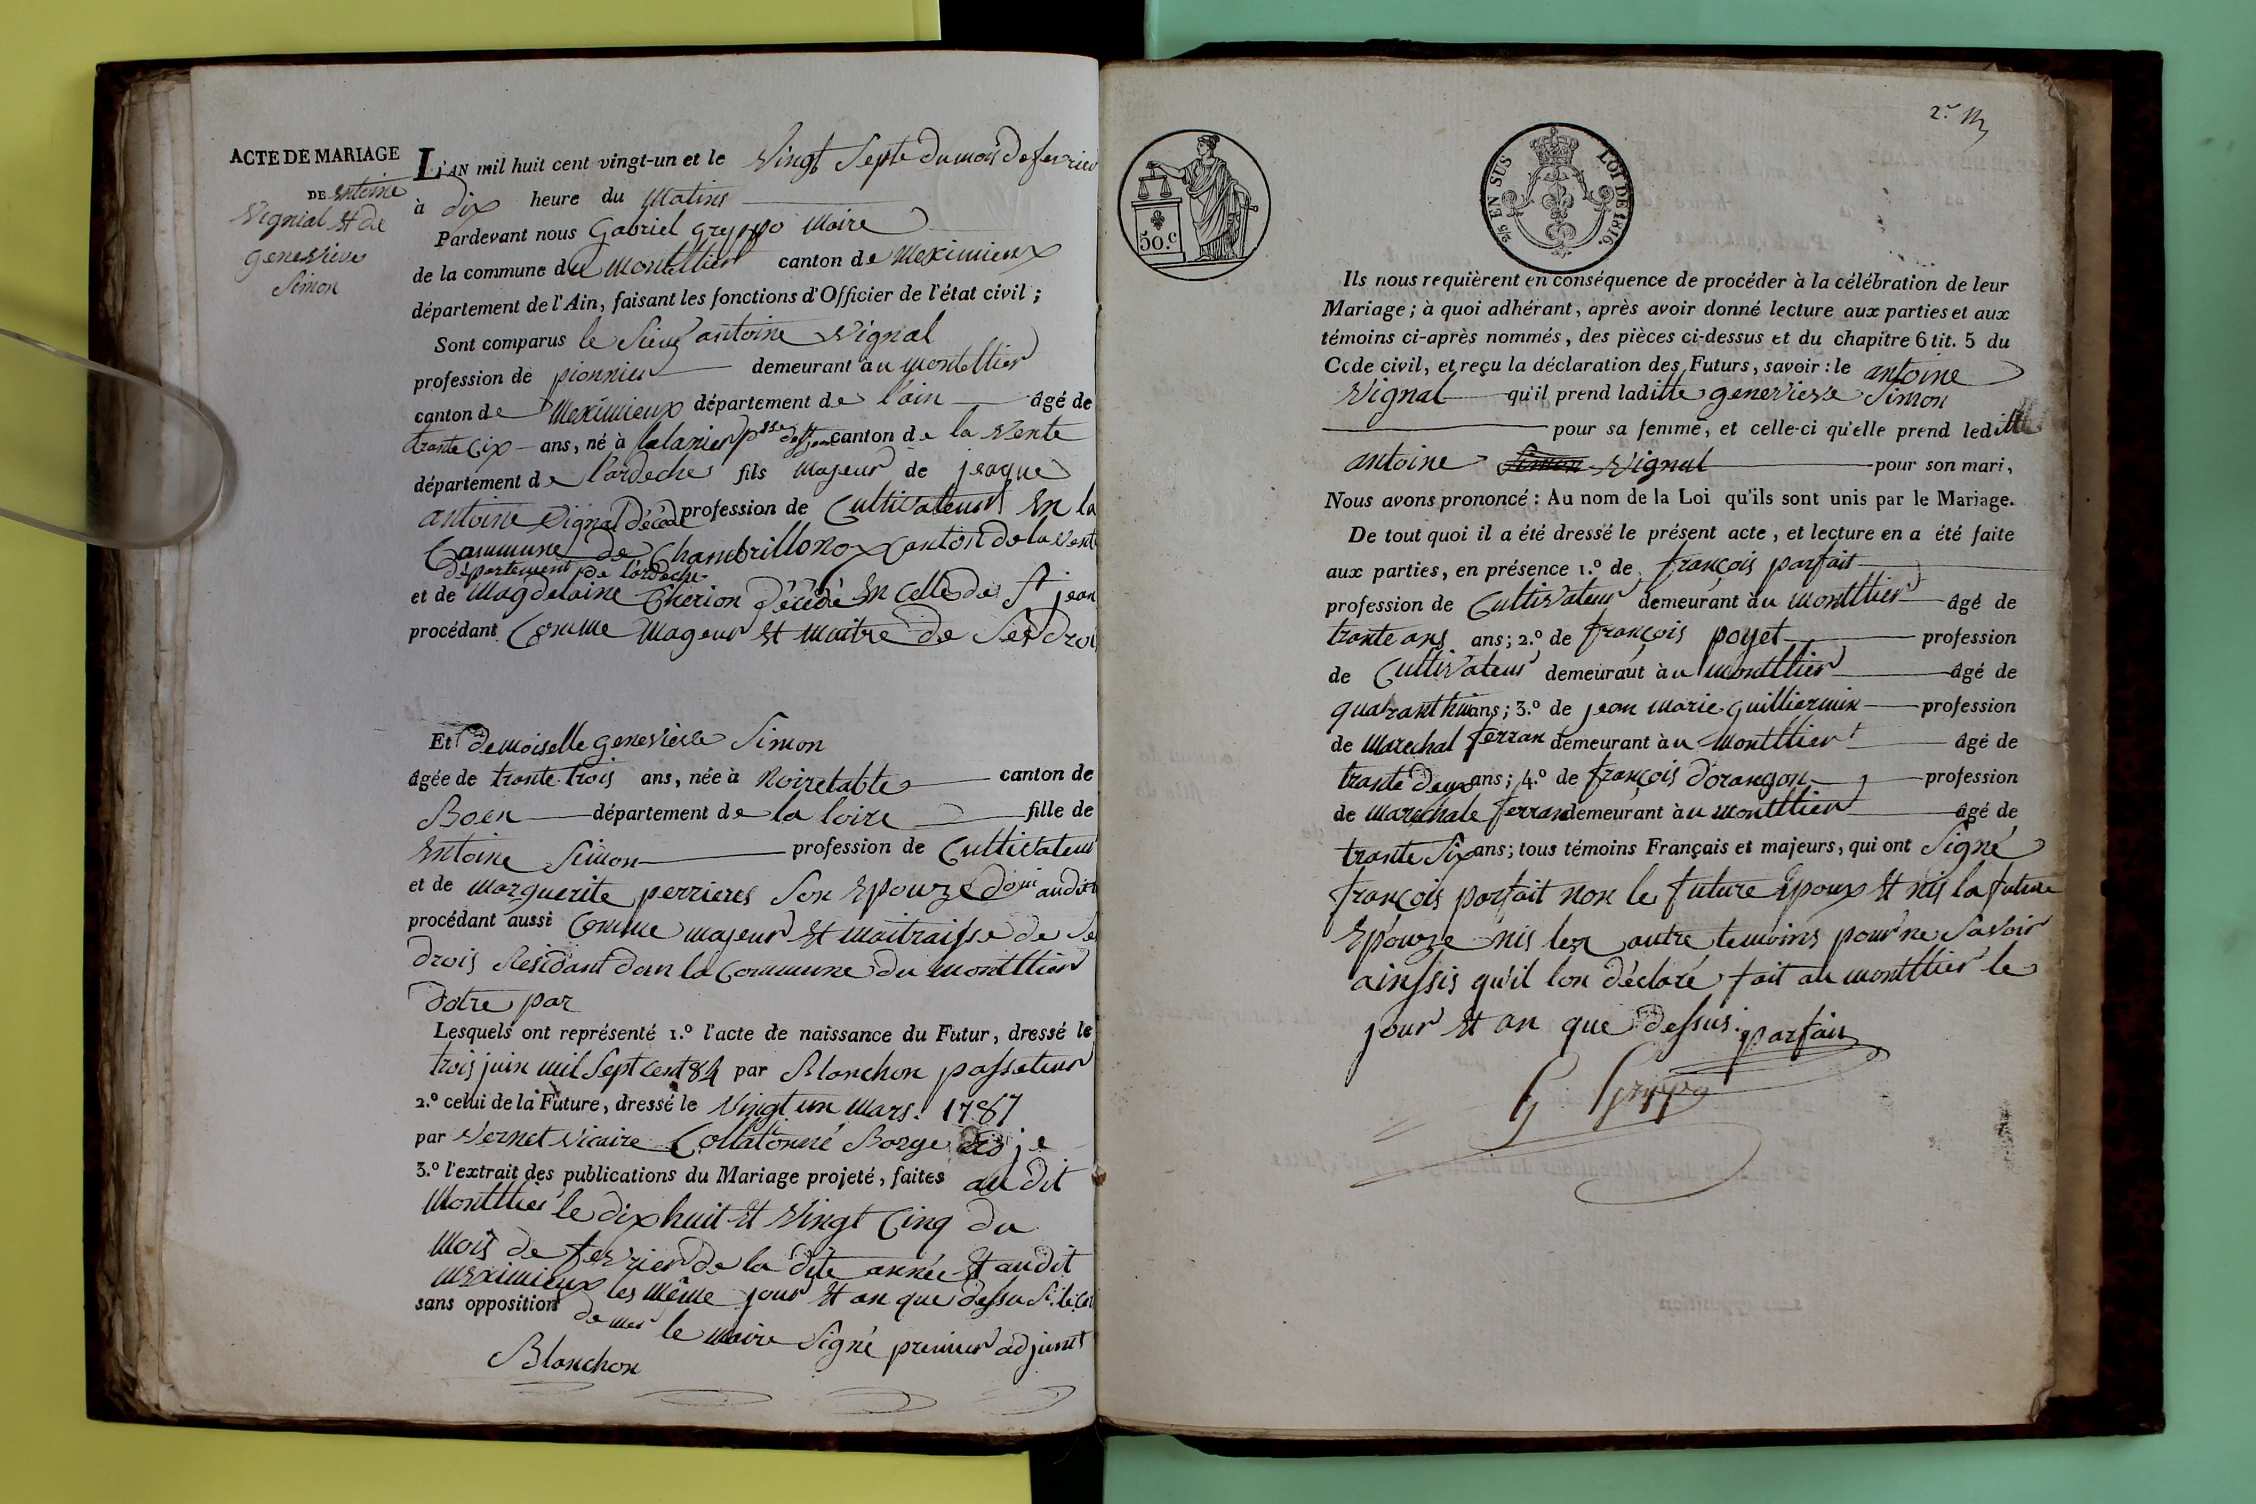 ACTE DE MARIAGE
DE entoine
Vignial et de
genevieve
Simon
L'AN mil huit cent vingt-un et le Vingt Septe du mois de fevrier
à dix heure du Matins
Pardevant nous Gabriel greppo Maire
de la commune du Montellier canton de Meximieux
département de l'Ain, faisant les fonctions d'Officier de l'état civil ;
Sont comparus le Sieur antoine Vignal
profession de pionnier demeurant au montellier
canton de Meximieux département de l'ain âgé de
trante Cix ans, né à canton de la Vente
département de l'ardeche fils majeur de jeaque
antoine Vignal décédé profession de Cultivateur En la
Commune de Chambrillonox Canton de la Vent
département de l'ardeche
et de Magdelaine Cherion décédé En Celle de St jean
procédant Comme Mageur et maitre de Ses droi
Et demoiselle genevieve Simon
âgée de trante trois ans, née à Noiretable canton de
Boen département de la loire fille de
Entoine Simon profession de Cultivateur
et de marguerite perrieres Son Epouze audit
procédant aussi Comme majeur et maitraisse de Se
drois Residant dan la Commune du montllier
d'otre par
Lesquels ont représenté 1.º l'acte de naissance du Futur, dressé le
trois juin mil Sept Cent 84 par Blanchon passateur
2.º celui de la Future, dressé le Vingt un Mars. 1787
par Vernet Vicaire Collationné Borge
3.º l'extrait des publications du Mariage projeté, faites au dit
Montllier le dix huit et Vingt Cinq du
Mois de fevrier de la dite année et audit
meximieux les même jour et an que dessu
sans opposition le maire Signé premier adjoint
Blanchon
2e M
50.c
5/2 EN SUS LOI DE 1816.
Ils nous requièrent en conséquence de procéder à la célébration de leur
Mariage ; à quoi adhérant, après avoir donné lecture aux parties et aux
témoins ci-après nommés, des pièces ci-dessus et du chapitre 6 tit. 5 du
Code civil, et reçu la déclaration des Futurs, savoir : le antoine
Vignal qu'il prend laditte genevieve Simon
pour sa femme, et celle-ci qu'elle prend leditt
antoine Simon Vignal pour son mari,
Nous avons prononcé : Au nom de la Loi qu'ils sont unis par le Mariage.
De tout quoi il a été dressé le présent acte, et lecture en a été faite
aux parties, en présence 1.º de françois parfait
profession de Cultivateur demeurant au montllier âgé de
trante ans ans ; 2.º de françois poyet profession
de Cultivateur demeurant au montllier âgé de
ans ; 3.º de jean marie guilliermin profession
de marechal ferran demeurant au montllier âgé de
trante deux ans ; 4.º de françois dorangon profession
de marechale ferran demeurant au montllier âgé de
trante Six ans ; tous témoins Français et majeurs, qui ont Signé
françois parfait non le future Epoux et nis la future
Epouze nis les autre temoins pour ne Savoir
ainssis qu'il lon déclaré fait au montllier le
jour et an que dessus. parfait
G Greppo